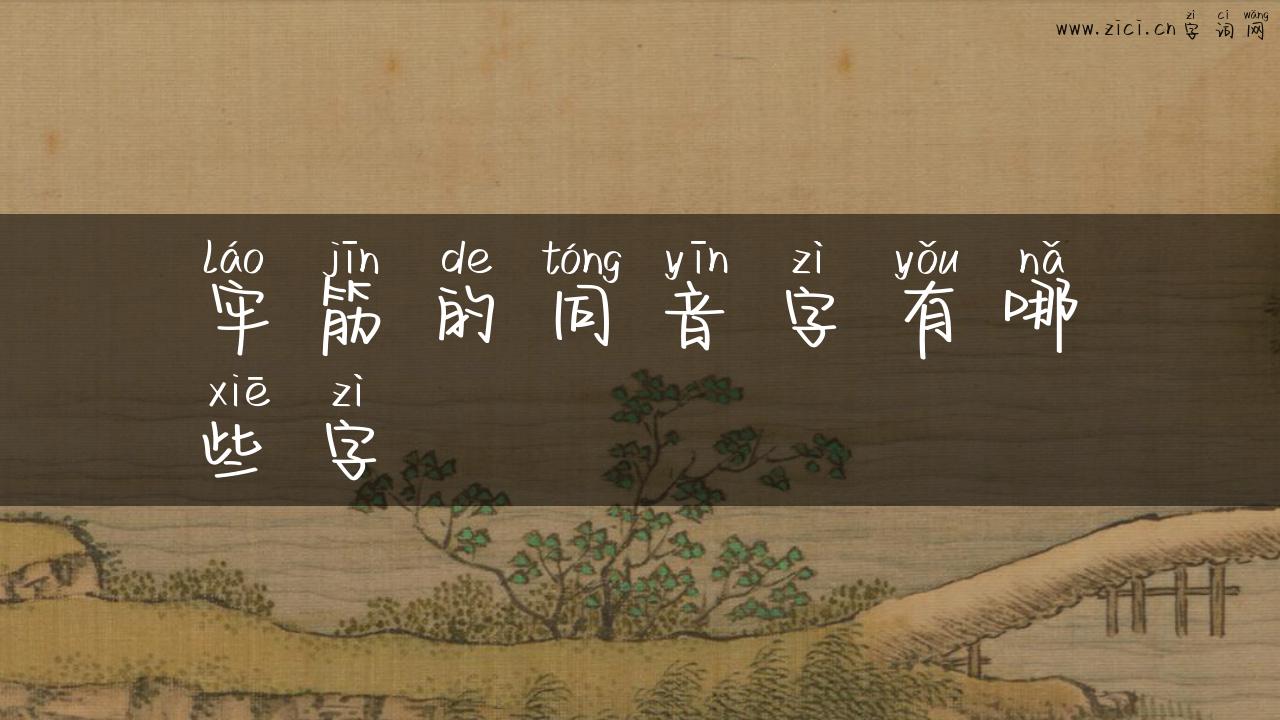 zì cí wǎng
www.zici.cn 字词网
láo jīn de tóng yīn zì yǒu nǎ
牢筋的同音字有哪
xiē zì
些字